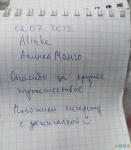 02.07.2022
Alinke
Алинка Манго
Спасибо за крутое
путешествие
Положили сигарету
с зажигалкой